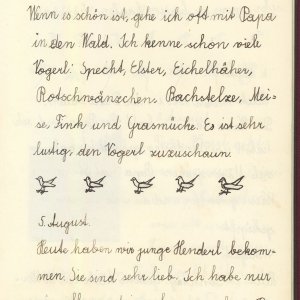 Wenn es schön ist, gehe ich oft mit Papa
in den Wald. Ich kenne schon viele
Vogerl: Specht, Elster, Eichelhäher,
Rotschwänzchen, Bachstelze, Mei-
se, Fink und Grasmücke. Es ist sehr
lustig, den Vogerl zuzuschaun.
5. August.
Heute haben wir junge Henderl bekom-
men. Sie sind sehr lieb. Ich habe nur